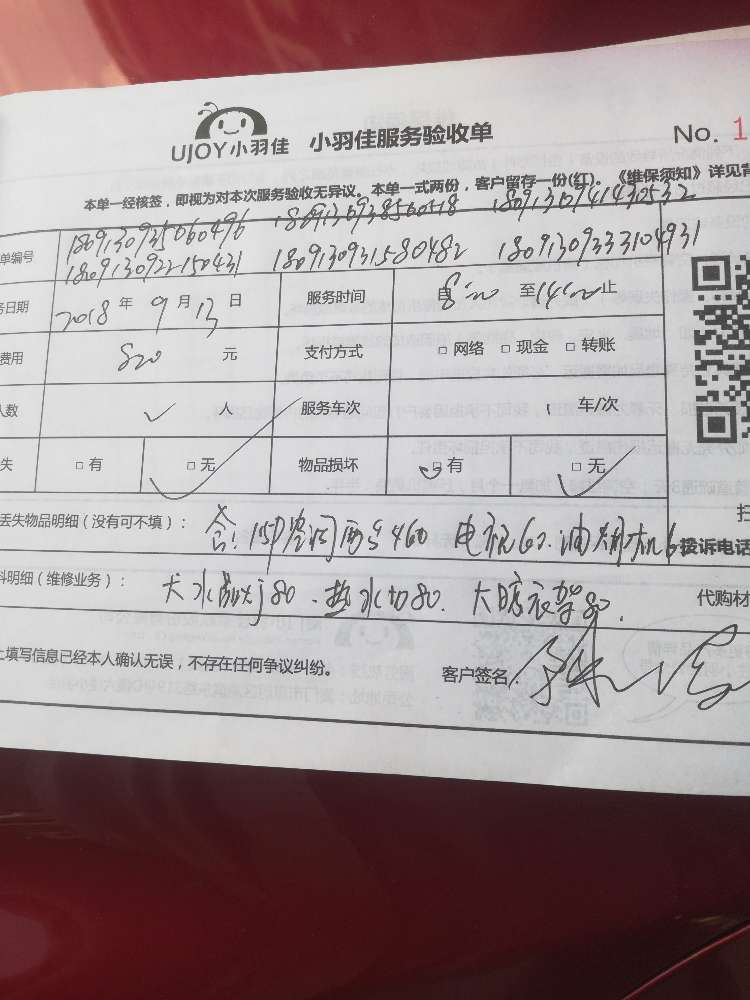 UJOY小羽佳 小羽佳服务验收单 No. 1
本单一经核签，即视为对本次服务验收无异议。本单一式两份，客户留存一份(红)。《维保须知》详见背
单编号 1809130935060496 1809130938560518 1809130941430532
1809130922150431 1809130931580482 18091309333104931
务日期 2018 年 9 月 13 日 服务时间 自 8:20 至 14:20 止
费用 820 元 支付方式 □ 网络 □ 现金 □ 转账
人数 人 服务车次 1 车/次
失 □ 有 □ 无 物品损坏 □ 有 □ 无
丢失物品明细（没有可不填）： 含! 150 空调两台460 电视60. 油烟机6
投诉电话
料明细（维修业务）： 大水 80. 热水 80. 大晾衣架80. 代购材
上填写信息已经本人确认无误，不存在任何争议纠纷。 客户签名：